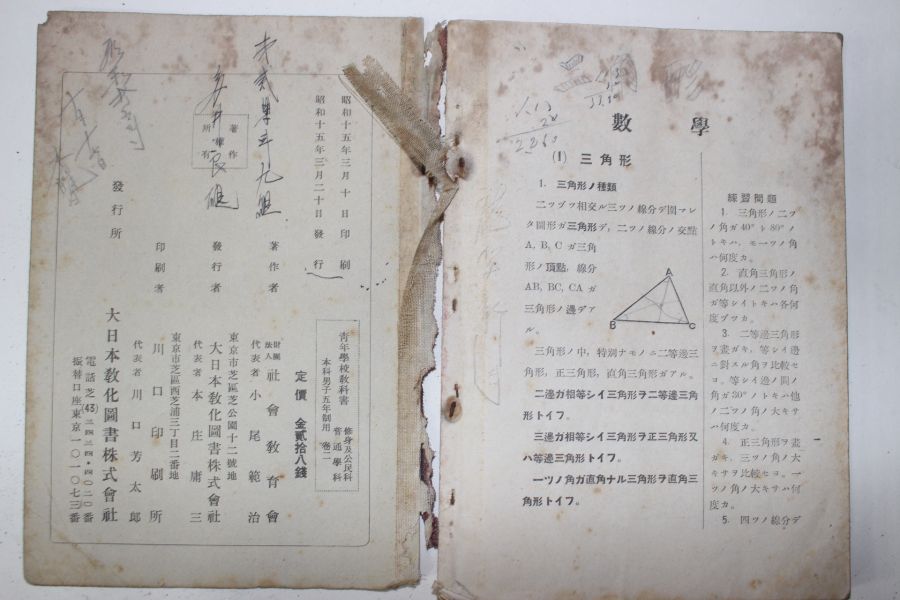 昭和十五年三月十日印刷
昭和十五年三月二十日發行
著作
所有
青年學校教科書
本科男子五年制用 卷二
修身及公民科
普通學科
定價 金貳拾八錢
著作者
財團法人 社會教育會
代表者 小尾範治
東京市芝區芝公園十二號地
發行者
大日本教化圖書株式會社
代表者 本庄庸三
東京市芝區西芝浦三丁目二番地
印刷者
川口印刷所
代表者 川口芳太郎
發行所
大日本教化圖書株式會社
電話芝(43)二四二四・四〇二〇番
振替口座東京一〇一〇七三番
三角形
數學
(1) 三角形
1. 三角形ノ種類
二ツヅツ相交ル三ツノ線分デ圍マレ
タ圖形ガ三角形デ，二ツノ線分ノ交點
A, B, C ガ三角
形ノ頂點，線分
AB, BC, CA ガ
三角形ノ邊デア
ル。
A
B
C
三角形ノ中，特別ナモノニ二等邊三
角形，正三角形，直角三角形ガアル。
二邊ガ相等シイ三角形ヲ二等邊三角
形トイフ。
三邊ガ相等シイ三角形ヲ正三角形又
ハ等邊三角形トイフ。
一ツノ角ガ直角ナル三角形ヲ直角三
角形トイフ。
練習問題
1. 三角形ノ二ツ
ノ角ガ40°ト80°ノ
トキハ，モ一ツノ角
ハ何度カ。
2. 直角三角形ノ
直角以外ノ二ツノ角
ガ等シイトキハ各何
度ヅツカ。
3. 二等邊三角形
ヲ畫ガキ，等シイ邊
ニ對スル角ヲ比較セ
ヨ。等シイ邊ノ間ノ
角ガ30°ノトキハ他
ノ二ツノ角ノ大キサ
ハ何度カ。
4. 正三角形ヲ畫
ガキ，三ツノ角ノ大
キサヲ比較セヨ。一
ツノ角ノ大キサハ何
度カ。
5. 四ツノ線分デ